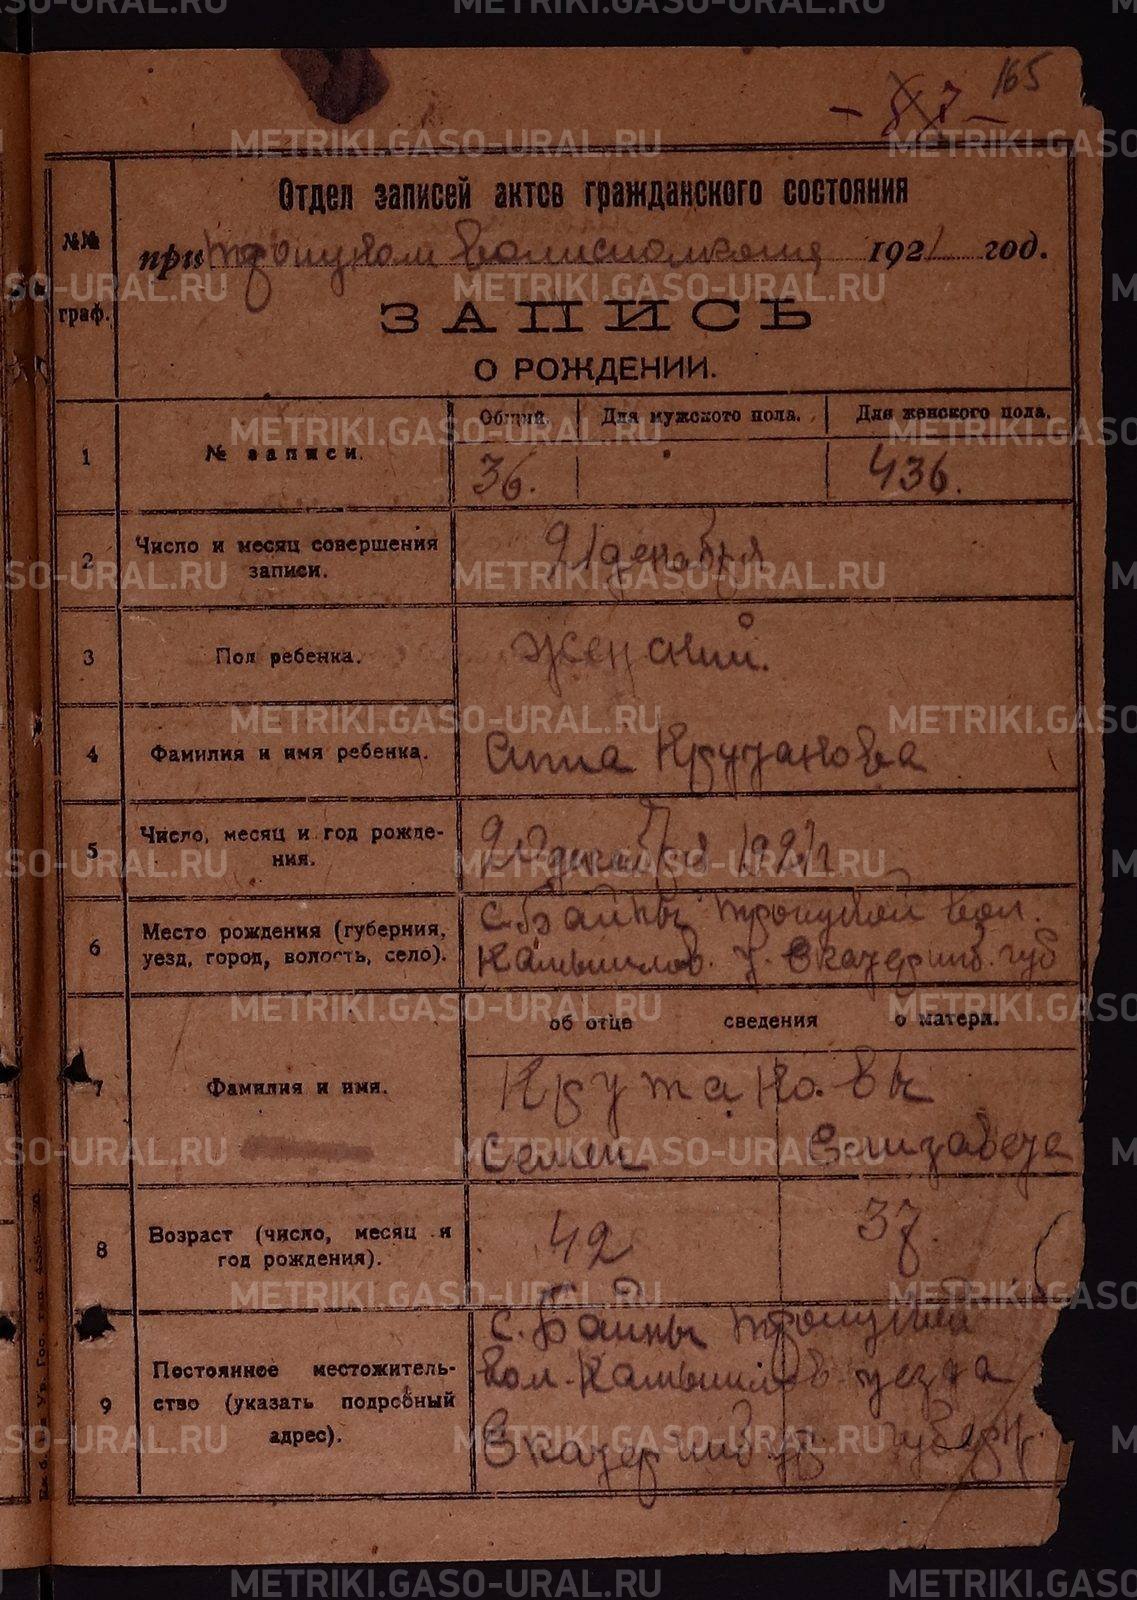 165
Отдел записей актов гражданского состояния
№№ граф.
при Троицком волисполкоме 1921 год.
ЗАПИСЬ
О РОЖДЕНИИ.
1 № записи. Общий. Для мужского пола. Для женского пола.
36. 436.
2 Число и месяц совершения записи. 21 декабря
3 Пол ребенка. Женский.
4 Фамилия и имя ребенка. Анна
5 Число, месяц и год рождения. 20 декабря 1921 г
6 Место рождения (губерния, уезд, город, волость, село). с. Байны Троицкой вол.
Камышлов. у. Екатеринб. губ
об отце сведения о матери.
7 Фамилия и имя.
Семен Елизавета
8 Возраст (число, месяц и год рождения). 42 37.
9 Постоянное местожительство (указать подробный адрес). с. Байны Троицкой
вол. Камышлов уезда
Екатеринбур губерн.
METRIKI.GASO-URAL.RU